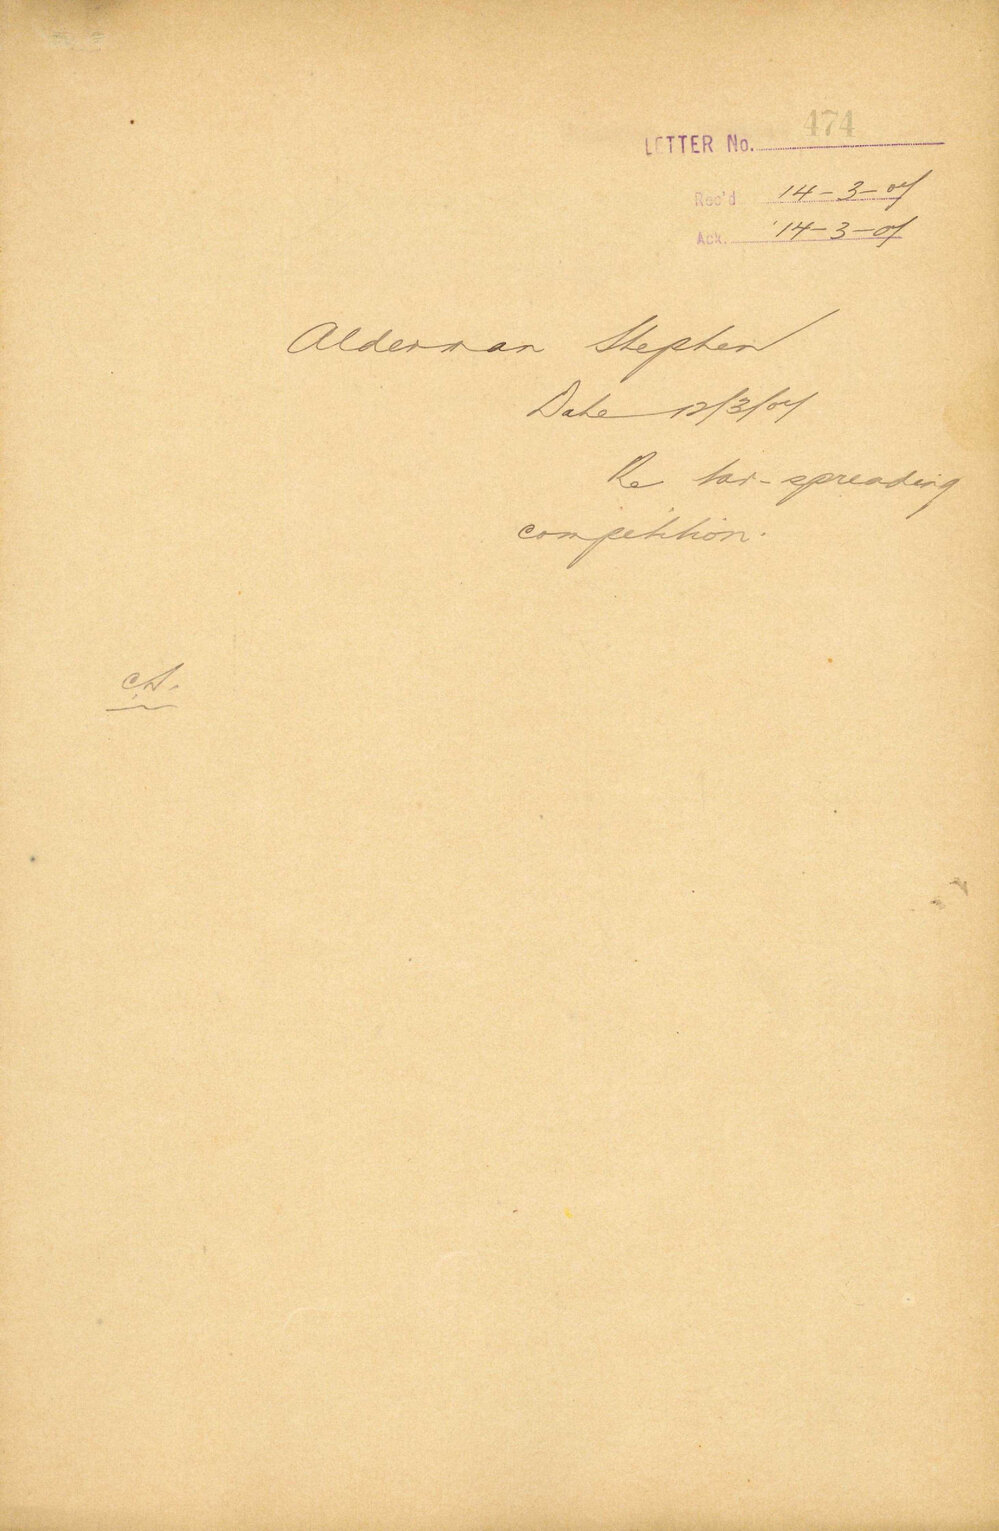 LETTER No. 474
Rec'd 14-3-07
Ack. 14-3-07
Alderman Stephen
Date 12/3/07
Re tar-spreading
competition.